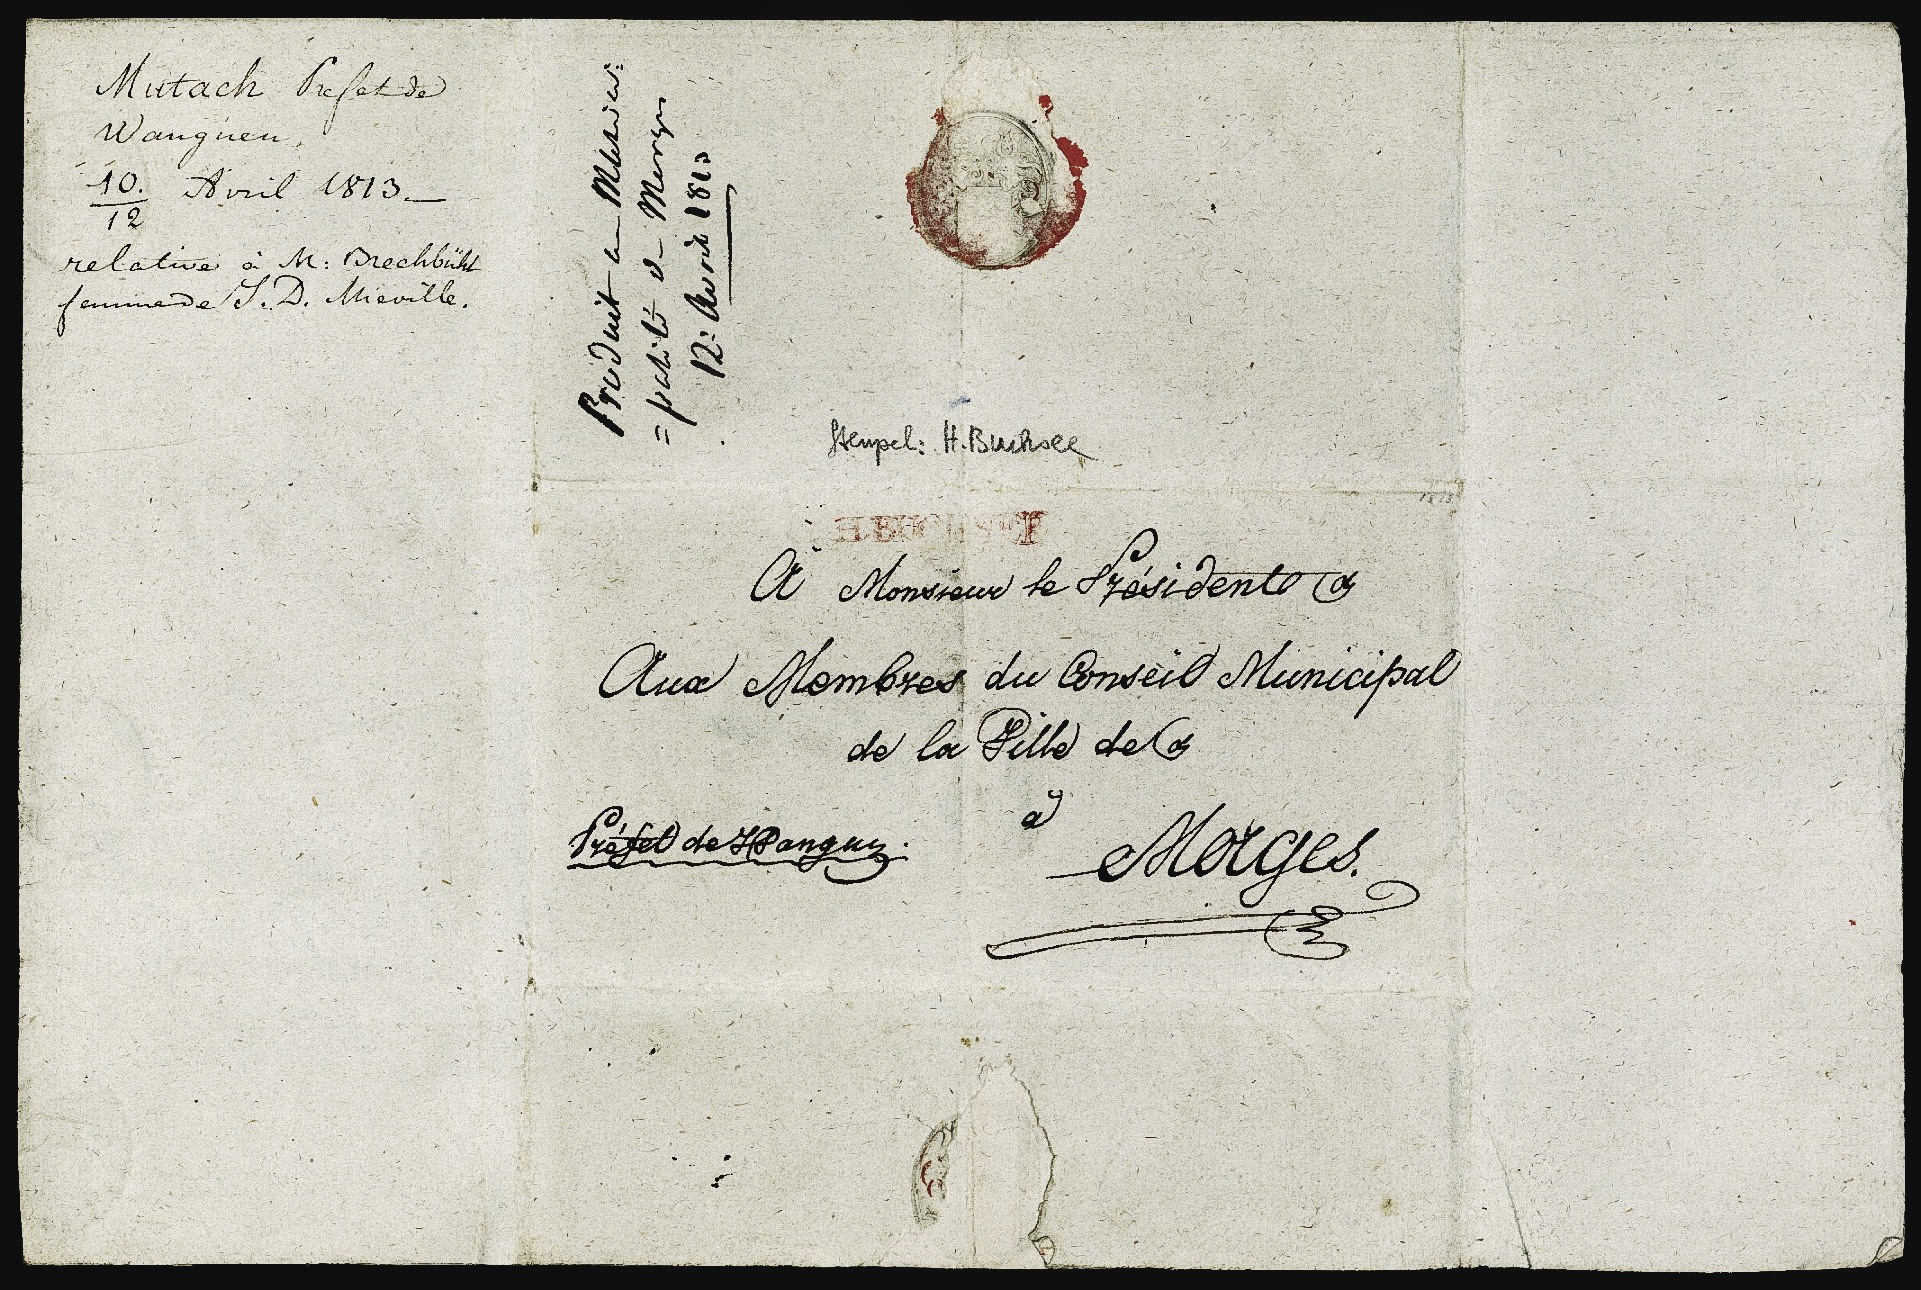 Mutach Prefet de
Wanguen,
10. Avril 1813
12
relative à M: Brechbühl
femme de J. D. Mieville.
Produit a Munici:
=palité d Morges
12: Avril 1813
Stempel: H. Buchsee
1813
H. BUCHSE
À Monsieur le Président &
Aux Membres du Conseil Municipal
de la Ville de &
à
Morges.
Préfet de Wanguen.